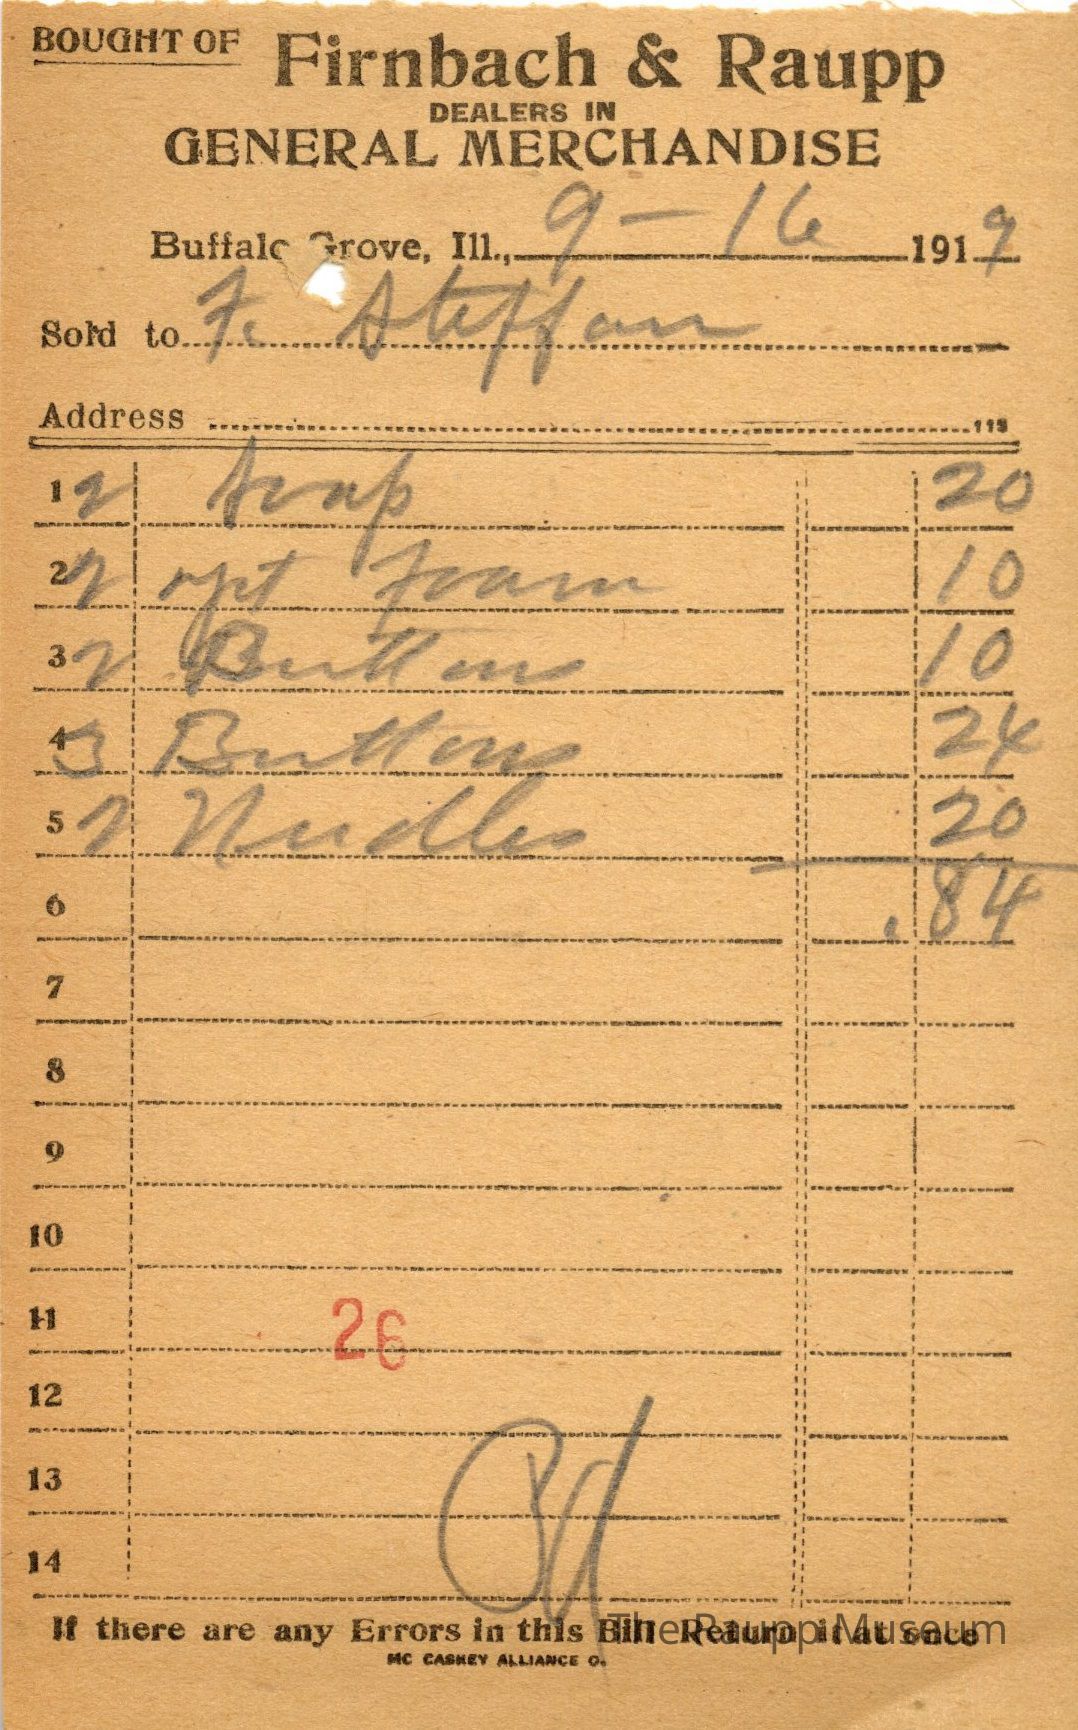 BOUGHT OF Firnbach & Raupp
DEALERS IN
GENERAL MERCHANDISE
Buffalo Grove, Ill., 9 - 16 1919
Sold to F. Steffan
Address
1 2 Soap 20
2 2 Foam 10
3 2 Buttons 10
4 3 Buttons 24
5 2 Needles 20
6 .84
7
8
9
10
11 26
12
13
14
Pd
If there are any Errors in this Bill Return it at once
The Raupp Museum
MC CASKEY ALLIANCE O.